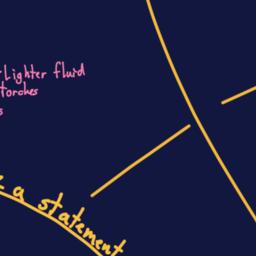 Lighter fluid
torches
a statement